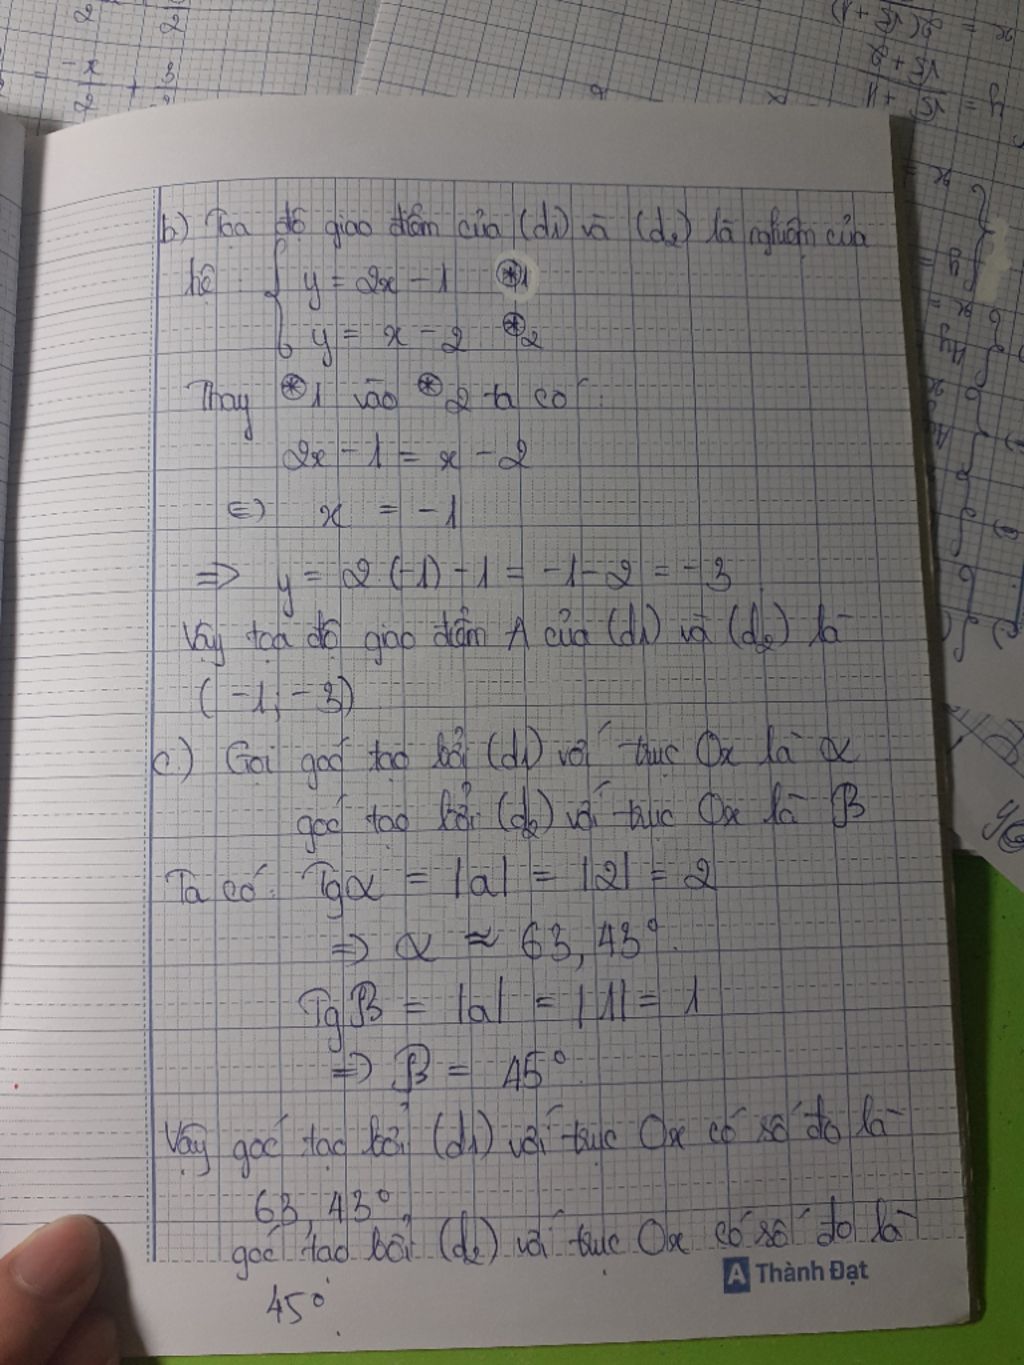 b) Tọa độ giao điểm của (d1) và (d2) là nghiệm của
hệ : { y = 2x - 1 ⊛1
y = x - 2 ⊛2
Thay ⊛1 vào ⊛2 ta có :
2x - 1 = x - 2
⇔ x = -1
⇒ y = 2.(-1) - 1 = -1 - 2 = -3
Vậy tọa độ giao điểm A của (d1) và (d2) là
(-1; -3)
c.) Gọi góc tạo bởi (d1) với trục Ox là α
góc tạo bởi (d2) với trục Ox là β
Ta có: Tgα = |a| = |2| = 2
⇒ α ≈ 63,43°.
Tgβ = |a| = |1| = 1
⇒ β = 45°
Vậy góc tạo bởi (d1) với trục Ox có số đo là
63,43°,
góc tạo bởi (d2) với trục Ox có số đo là
A Thành Đạt
45°.